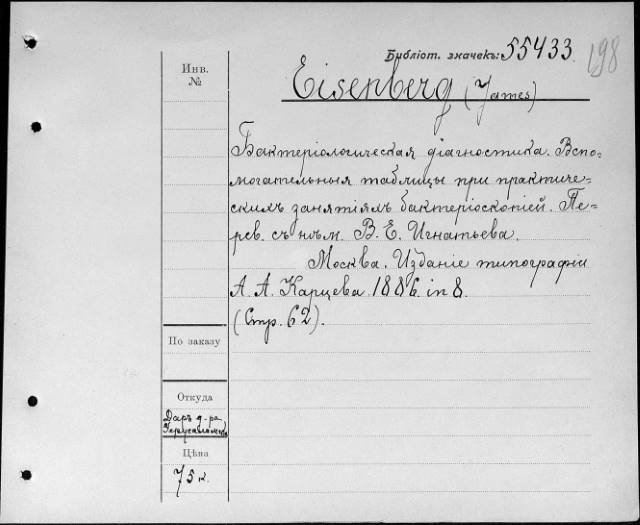 Библіот. значекъ: 55433.
198
Инв.
№
Eisenberg (James)
Бактеріологическая діагностика. Вспо-
могательныя таблицы при практиче-
скихъ занятіяхъ бактеріоскопіей. Пе-
рев. съ нѣм. В. Е. Игнатьева.
Москва. Изданіе типографіи
А. А. Карцева. 1886. in 8.
(Стр. 62).
По заказу
Откуда
Даръ д-ра
Цѣна
75 к.